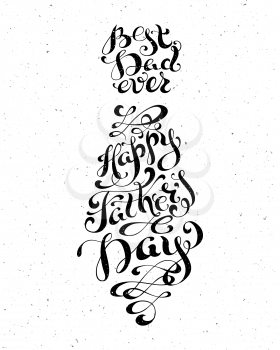 Best
Dad
ever
Happy
Fathers
Day